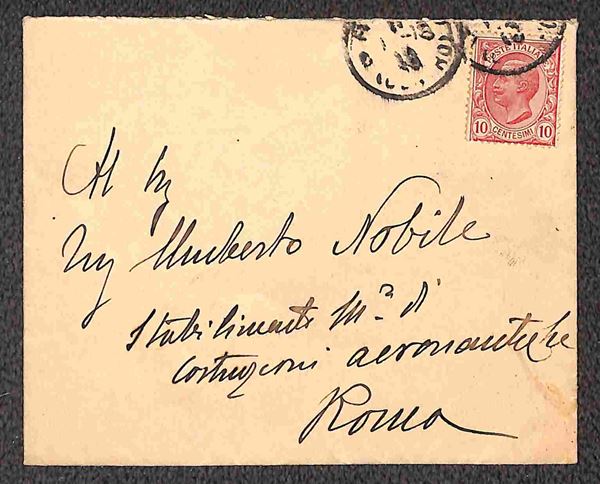 POSTE ITALIANE
10 CENTESIMI 10
Al Sig
Ing Umberto Nobile
Stabilimento M.re di
costruzioni aeronautiche
Roma